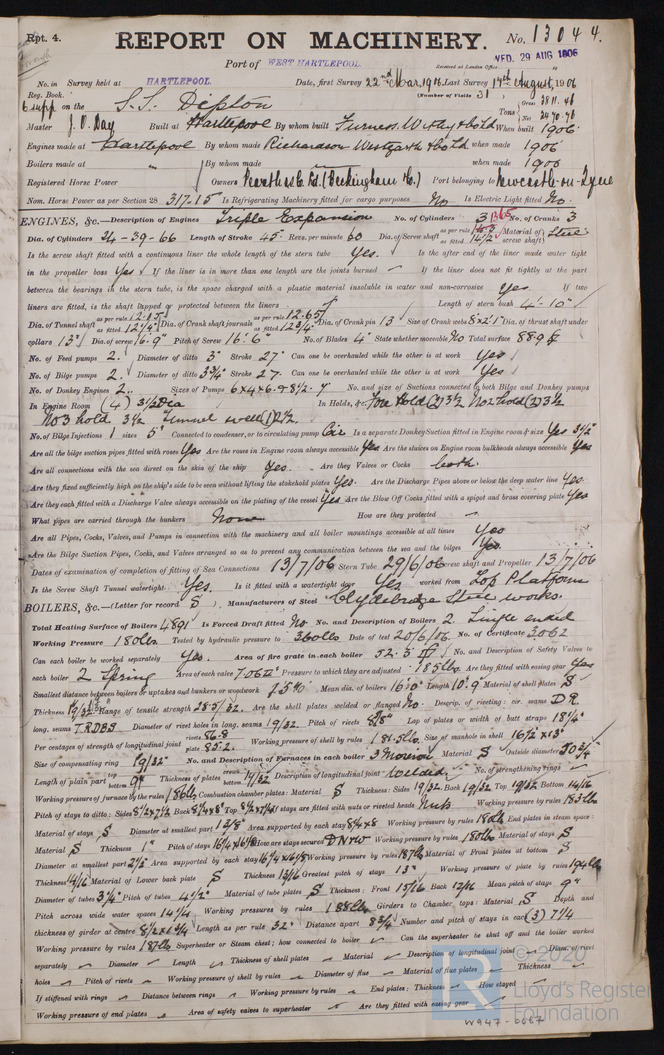 Rpt. 4.
REPORT ON MACHINERY.
No. 13044.
Port of WEST HARTLEPOOL
Received at London Office WED. 29 AUG 1906
No. in Survey held at HARTLEPOOL Date, first Survey 22nd Mar, 1906 Last Survey 17th August, 1906
Reg. Book. (Number of Visits 31)
6 supp on the S.S. Dipton Tons Gross 3811.48 Net 2470.78
Master J. O. Day Built at Hartlepool By whom built Furness, Withy & Co Ld When built 1906
Engines made at Hartlepool By whom made Richardson Westgarth & Co Ld when made 1906
Boilers made at " By whom made " when made 1906
Registered Horse Power Owners Port belonging to Newcastle-on-Tyne
Nom. Horse Power as per Section 28 317.15 Is Refrigerating Machinery fitted for cargo purposes No Is Electric Light fitted No.
ENGINES, &c.—Description of Engines Triple Expansion No. of Cylinders 3 No. of Cranks 3
Dia. of Cylinders 24-39-66 Length of Stroke 45" Revs. per minute 60 Dia. of Screw shaft as per rule as fitted 14 1/2" Material of screw shaft Steel
Is the screw shaft fitted with a continuous liner the whole length of the stern tube Yes. Is the after end of the liner made water tight
in the propeller boss Yes If the liner is in more than one length are the joints burned — If the liner does not fit tightly at the part
between the bearings in the stern tube, is the space charged with a plastic material insoluble in water and non-corrosive Yes. If two
liners are fitted, is the shaft lapped or protected between the liners Length of stern bush 4'-10"
Dia. of Tunnel shaft as per rule 12.05 as fitted 12 1/4" Dia. of Crank shaft journals as per rule 12.65 as fitted 12 3/4" Dia. of Crank pin 13 Size of Crank webs 8x21 Dia. of thrust shaft under
collars 13" Dia. of screw 16'-9" Pitch of Screw 16'-6" No. of Blades 4 State whether moveable No Total surface 88.9
No. of Feed pumps 2. Diameter of ditto 3" Stroke 27" Can one be overhauled while the other is at work Yes
No. of Bilge pumps 2. Diameter of ditto 3 3/4" Stroke 27" Can one be overhauled while the other is at work Yes
No. of Donkey Engines 2. Sizes of Pumps No. and size of Suctions connected to both Bilge and Donkey pumps
In Engine Room (4) 3 1/2 Dia In Holds, &c. Fore Hold (2) 3 1/2 No 2 hold (2) 3 1/2
No 3 hold 3 1/2 Tunnel well (1) 2 1/2
No. of Bilge Injections 1 sizes 5" Connected to condenser, or to circulating pump Cir Is a separate Donkey Suction fitted in Engine room & size Yes 3 1/2"
Are all the bilge suction pipes fitted with roses Yes Are the roses in Engine room always accessible Yes Are the sluices on Engine room bulkheads always accessible Yes
Are all connections with the sea direct on the skin of the ship Yes. Are they Valves or Cocks both.
Are they fixed sufficiently high on the ship's side to be seen without lifting the stokehold plates Yes. Are the Discharge Pipes above or below the deep water line Yes.
Are they each fitted with a Discharge Valve always accessible on the plating of the vessel Yes Are the Blow Off Cocks fitted with a spigot and brass covering plate Yes
What pipes are carried through the bunkers None How are they protected —
Are all Pipes, Cocks, Valves, and Pumps in connection with the machinery and all boiler mountings accessible at all times Yes
Are the Bilge Suction Pipes, Cocks, and Valves arranged so as to prevent any communication between the sea and the bilges Yes
Dates of examination of completion of fitting of Sea Connections 13/7/06 Stern Tube 29/6/06 Screw shaft and Propeller 13/7/06
Is the Screw Shaft Tunnel watertight Yes. Is it fitted with a watertight door Yes worked from Top Platform
BOILERS, &c.—(Letter for record S) Manufacturers of Steel Clydebridge Steel works
Total Heating Surface of Boilers 4891 Is Forced Draft fitted No No. and Description of Boilers 2 Single ended
Working Pressure 180lbs. Tested by hydraulic pressure to 360lbs Date of test 20/6/06 No. of Certificate 3062
Can each boiler be worked separately Yes. Area of fire grate in each boiler 52.5 No. and Description of Safety Valves to
each boiler 2 Spring Area of each valve 7.06 Pressure to which they are adjusted 185lbs Are they fitted with easing gear Yes
Smallest distance between boilers or uptakes and bunkers or woodwork Mean dia. of boilers 16'.0" Length 10'.9" Material of shell plates S
Thickness Range of tensile strength 28.5/32. Are the shell plates welded or flanged No. Descrip. of riveting: cir. seams D R
long. seams T.R.D.B.S Diameter of rivet holes in long. seams 1 9/32 Pitch of rivets Lap of plates or width of butt straps 18 1/4"
Per centages of strength of longitudinal joint rivets 86.8 plate 85.2. Working pressure of shell by rules Size of manhole in shell 16 1/2 x 13"
Size of compensating ring 1 9/32 No. and Description of Furnaces in each boiler 3 Morison Material S Outside diameter 50 3/4"
Length of plain part top bottom 9" Thickness of plates crown bottom 17/32 Description of longitudinal joint Welded. No. of strengthening rings —
Working pressure of furnace by the rules 186lb Combustion chamber plates: Material S Thickness: Sides 19/32. Back 19/32 Top 19/32 Bottom 14/16
Pitch of stays to ditto: Sides 8 1/2 x 7 1/2 Back 8 1/4 x 8" Top If stays are fitted with nuts or riveted heads Nuts Working pressure by rules 183lbs
Material of stays S Diameter at smallest part 1 3/8" Area supported by each stay Working pressure by rules 180lb End plates in steam space:
Material S Thickness 1" Pitch of stays How are stays secured D N & W Working pressure by rules 180lb Material of stays S
Diameter at smallest part Area supported by each stay Working pressure by rules 187lb Material of Front plates at bottom S
Thickness 14/16 Material of Lower back plate S Thickness 13/16 Greatest pitch of stays 13" Working pressure of plate by rules 194lbs
Diameter of tubes 3 1/4" Pitch of tubes 4 1/2" Material of tube plates S Thickness: Front 15/16 Back 12/16 Mean pitch of stays 9"
Pitch across wide water spaces 14 1/4 Working pressures by rules 188lb Girders to Chamber tops: Material S Depth and
thickness of girder at centre Length as per rule 32" Distance apart 8 3/4 Number and pitch of stays in each (3) 7 1/4
Working pressure by rules 187lb Superheater or Steam chest; how connected to boiler — Can the superheater be shut off and the boiler worked
separately — Diameter — Length — Thickness of shell plates — Material — Description of longitudinal joint — Diam. of rivet
holes — Pitch of rivets — Working pressure of shell by rules — Diameter of flue — Material of flue plates — Thickness —
If stiffened with rings — Distance between rings — Working pressure by rules — End plates: Thickness — How stayed —
Working pressure of end plates — Area of safety valves to superheater — Are they fitted with easing gear —
© 2020
Lloyd's Register
Foundation
W947-0087